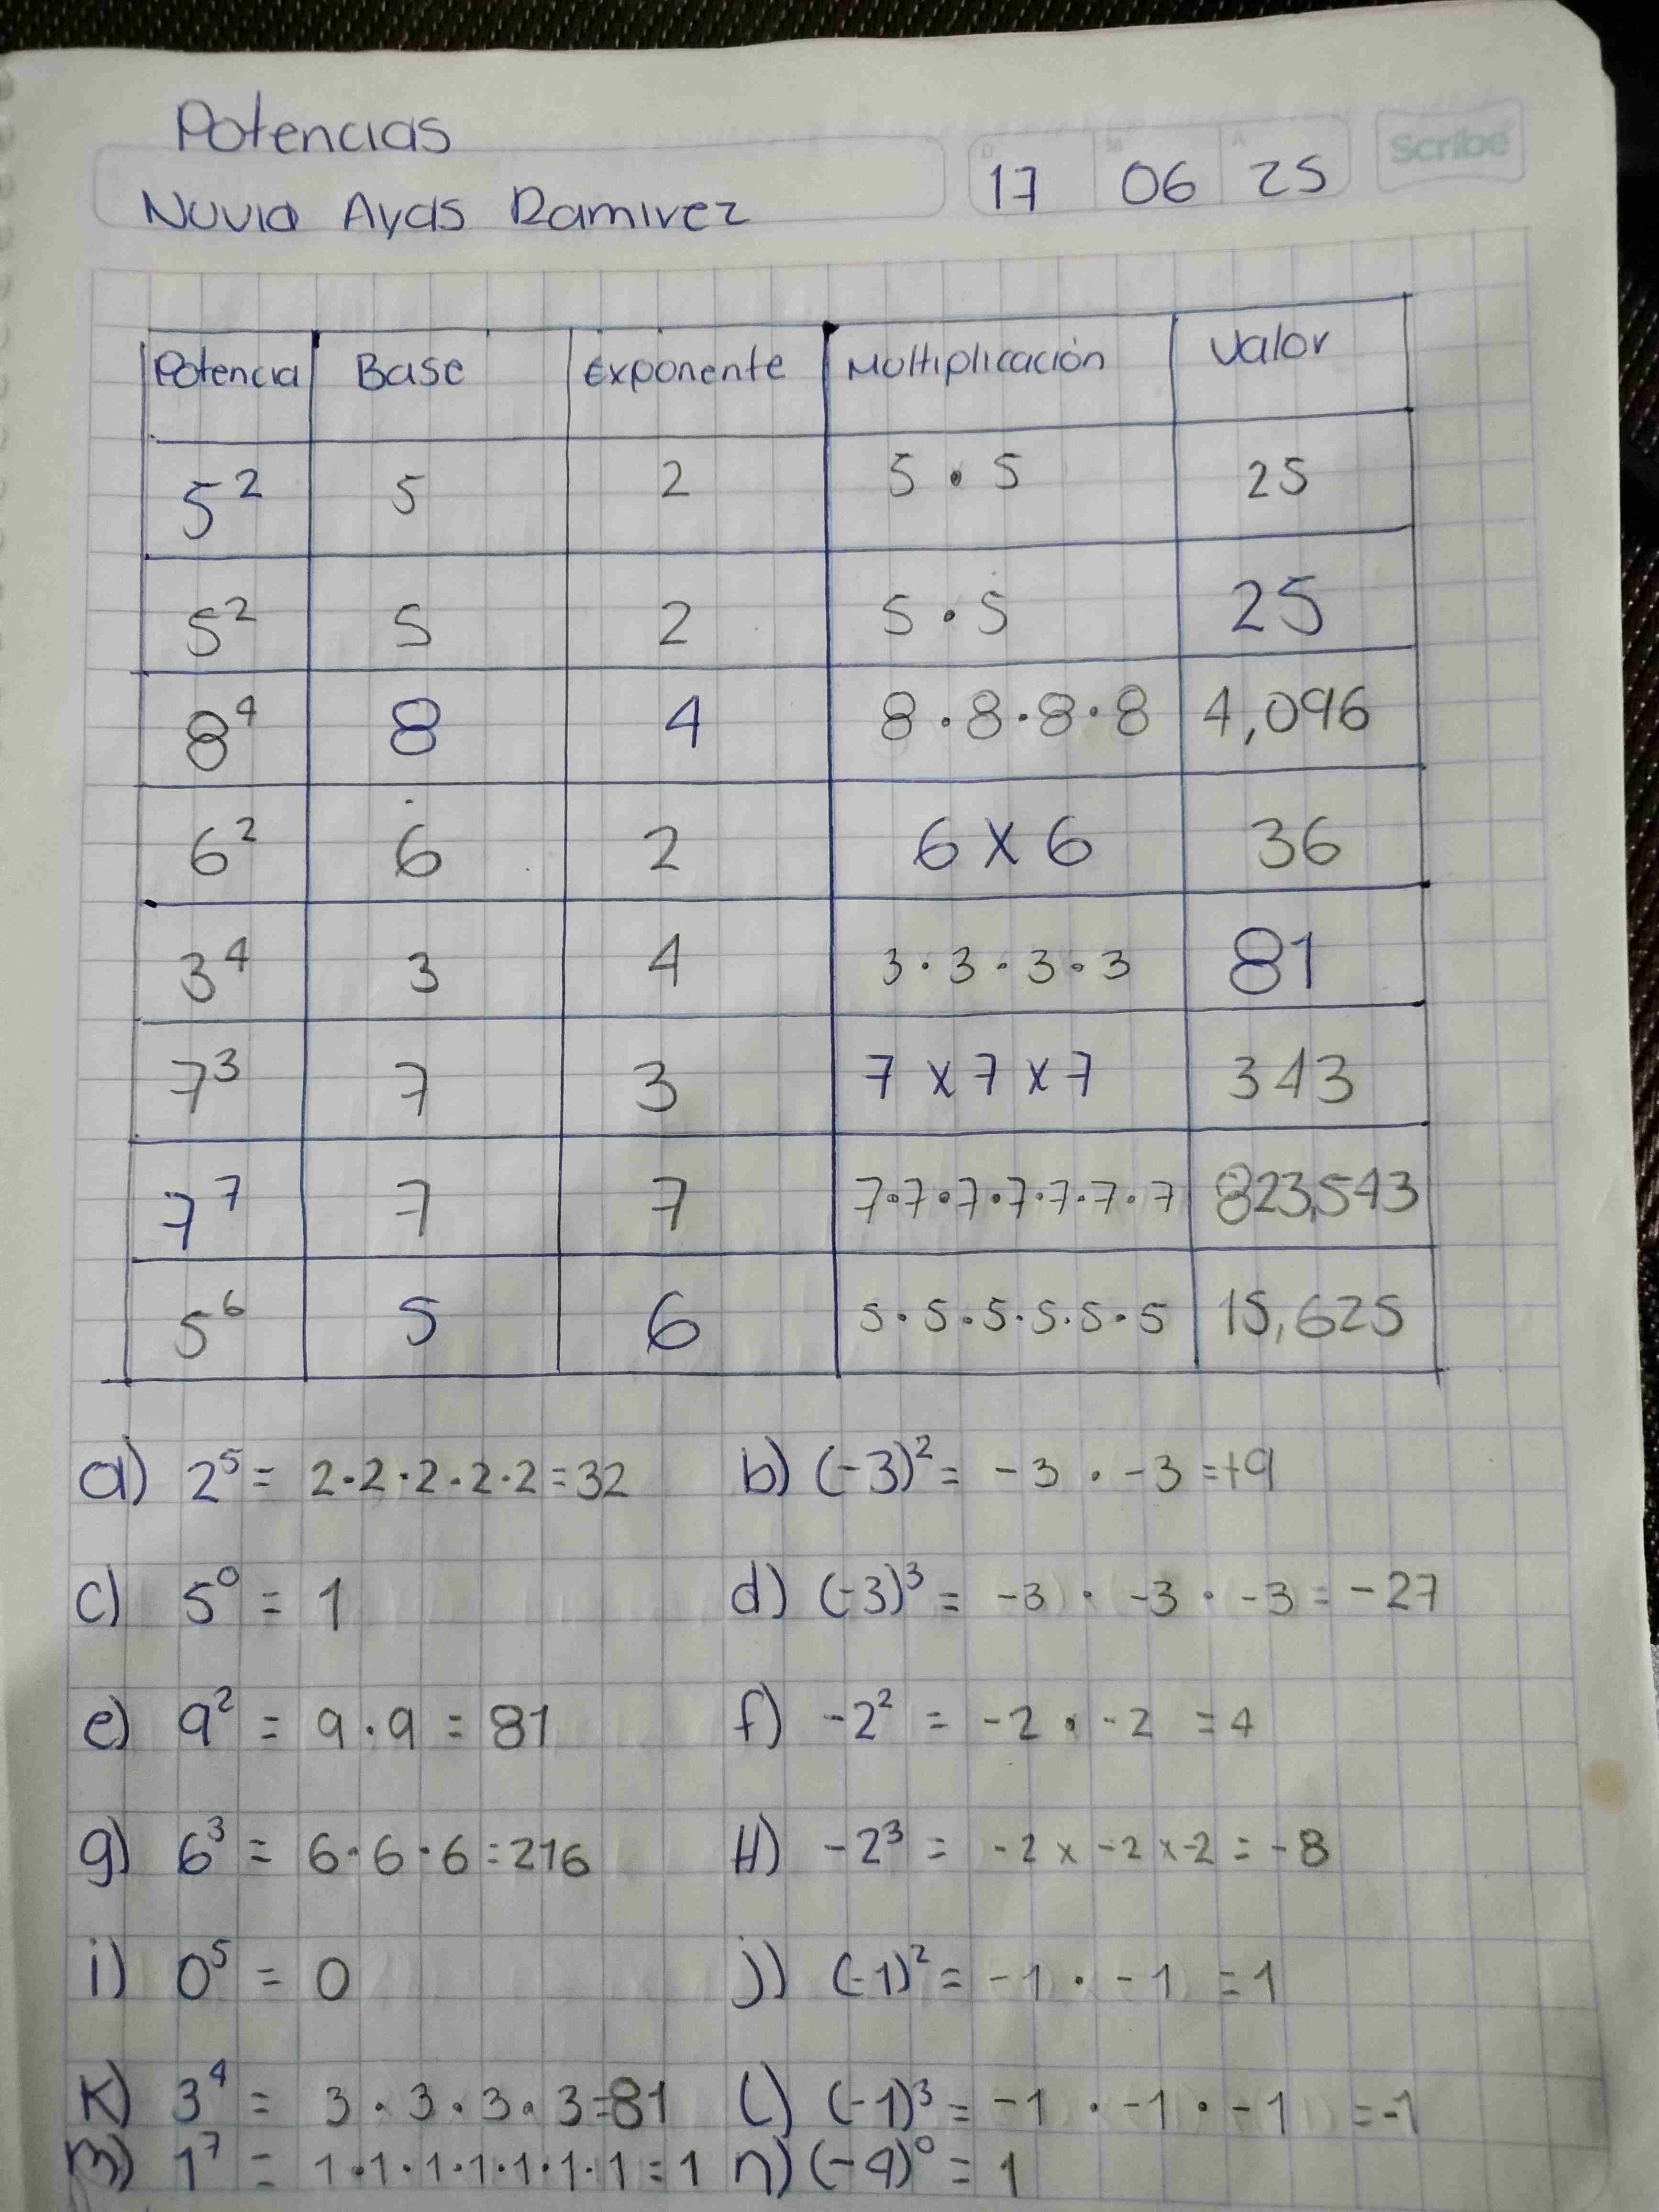 Potencias
D M A Scribe
Nuvia Ayas Ramirez 17 06 25
Potencia Base Exponente Multiplicación Valor
5² 5 2 5 · 5 25
5² 5 2 5 · 5 25
8⁴ 8 4 8 · 8 · 8 · 8 4,096
6² 6 2 6 X 6 36
3⁴ 3 4 3 · 3 · 3 · 3 81
7³ 7 3 7 x 7 x 7 343
7⁷ 7 7 7·7·7·7·7·7·7 823,543
5⁶ 5 6 5·5·5·5·5·5 15,625
a) 2⁵ = 2·2·2·2·2=32 b) (-3)² = -3 · -3 =+9
c) 5⁰ = 1 d) (-3)³ = -3 · -3 · -3 = -27
e) 9² = 9 · 9 = 81 f) -2² = -2 · -2 = 4
g) 6³ = 6·6·6=216 H) -2³ = -2 x -2 x -2 = -8
i) 0⁵ = 0 j) (-1)² = -1 · -1 = 1
K) 3⁴ = 3 · 3 · 3 · 3=81 l) (-1)³ = -1 · -1 · -1 = -1
m) 1⁷ = 1·1·1·1·1·1·1=1 n) (-4)⁰ = 1